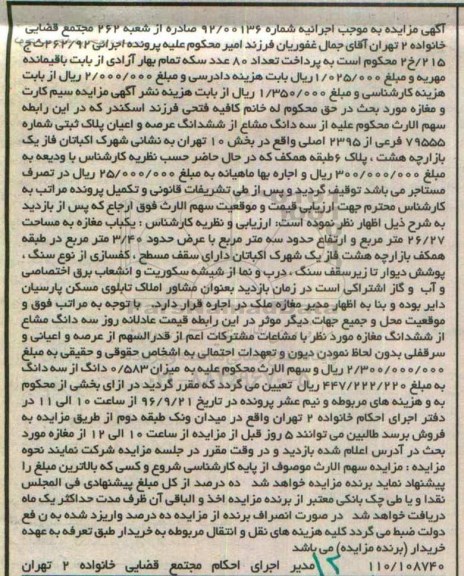 آگهی مزایده به موجب اجرائیه شماره ۹۲/۰۰۱۳۶ صادره از شعبه ۲۶۲ مجتمع قضایی
خانواده ۲ تهران آقای جمال غفوریان فرزند امیر محکوم علیه پرونده اجرائی ۲۶۲/۹۲ث‌ج
۲۱۵/خ۲ محکوم است به پرداخت تعداد ۸۰ عدد سکه تمام بهار آزادی از بابت باقیمانده
مهریه و مبلغ ۱/۰۲۵/۰۰۰ ریال بابت هزینه دادرسی و مبلغ ۲/۰۰۰/۰۰۰ ریال از بابت
هزینه کارشناسی و مبلغ ۱/۳۵۰/۰۰۰ ریال از بابت هزینه نشر آگهی مزایده سیم کارت
و مغازه مورد بحث در حق محکوم له خانم کافیه فتحی فرزند اسکندر که در این رابطه
سهم الارث محکوم علیه از سه دانگ مشاع از ششدانگ عرصه و اعیان پلاک ثبتی شماره
۷۹۵۵۵ فرعی از ۲۳۹۵ اصلی واقع در بخش ۱۰ تهران به نشانی شهرک اکباتان فاز یک
بازارچه هشت ، پلاک ۶طبقه همکف که در حال حاضر حسب نظریه کارشناس با ودیعه به
مبلغ ۳۰۰/۰۰۰/۰۰۰ ریال و اجاره بها ماهیانه به مبلغ ۲۵/۰۰۰/۰۰۰ ریال در تصرف
مستاجر می باشد توقیف گردید و پس از طی تشریفات قانونی و تکمیل پرونده مراتب به
کارشناس محترم جهت ارزیابی قیمت و موقعیت سهم الارث فوق ارجاع که پس از بازدید
به شرح ذیل اظهار نظر نموده است: ارزیابی و نظریه کارشناس : یکباب مغازه به مساحت
۲۶/۲۷ متر مربع و ارتفاع حدود سه متر مربع با عرض حدود ۳/۴۰ متر مربع در طبقه
همکف بازارچه هشت فاز یک شهرک اکباتان دارای سقف مسطح ، کفسازی از نوع سنگ ،
پوشش دیوار تا زیرسقف سنگ ، درب و نما از شیشه سکوریت و انشعاب برق اختصاصی
و آب و گاز اشتراکی است در زمان بازدید بعنوان مشاور املاک تابلوی مسکن پارسیان
دایر بوده و بنا به اظهار مدیر مغازه ملک در اجاره قرار دارد. با توجه به مراتب فوق و
موقعیت محل و جمیع جهات دیگر موثر در این رابطه قیمت عادلانه روز سه دانگ مشاع
از ششدانگ مغازه مورد نظر با مشاعات مشترکات اعم از قدرالسهم از عرصه و اعیانی و
سرقفلی بدون لحاظ نمودن دیون و تعهدات احتمالی به اشخاص حقوقی و حقیقی به مبلغ
۲/۳۰۰/۰۰۰/۰۰۰ ریال و سهم الارث محکوم علیه به میزان ۰/۵۸۳ دانگ از سه دانگ
به مبلغ ۴۴۷/۲۲۲/۲۲۰ ریال تعیین می گردد که مقرر گردید در ازای بخشی از محکوم
به و هزینه های مربوطه و نیم عشر پرونده در تاریخ ۹۶/۹/۲۱ از ساعت ۱۰ الی ۱۱ در
دفتر اجرای احکام خانواده ۲ تهران واقع در میدان ونک طبقه دوم از طریق مزایده به
فروش برسد طالبین می توانند ۵ روز قبل از مزایده از ساعت ۱۰ الی ۱۲ از مغازه مورد
بحث در آدرس اعلام شده بازدید و در وقت مقرر در جلسه مزایده شرکت نمایند نحوه
مزایده : مزایده سهم الارث موصوف از پایه کارشناسی شروع و کسی که بالاترین مبلغ را
پیشنهاد نماید برنده مزایده خواهد شد ده درصد از کل مبلغ پیشنهادی فی المجلس
نقدا و یا طی چک بانکی معتبر از برنده مزایده اخذ و الباقی آن ظرف مدت حداکثر یک ماه
دریافت خواهد شد در صورت انصراف برنده از مزایده ده درصد واریزد شده به ن فع
دولت ضبط می گردد کلیه هزینه های نقل و انتقال مربوطه به خریدار طبق تعرفه به عهده
خریدار (برنده مزایده) می باشد
۱۱۰/۱۰۸۷۴۰ مدیر اجرای احکام مجتمع قضایی خانواده ۲ تهران